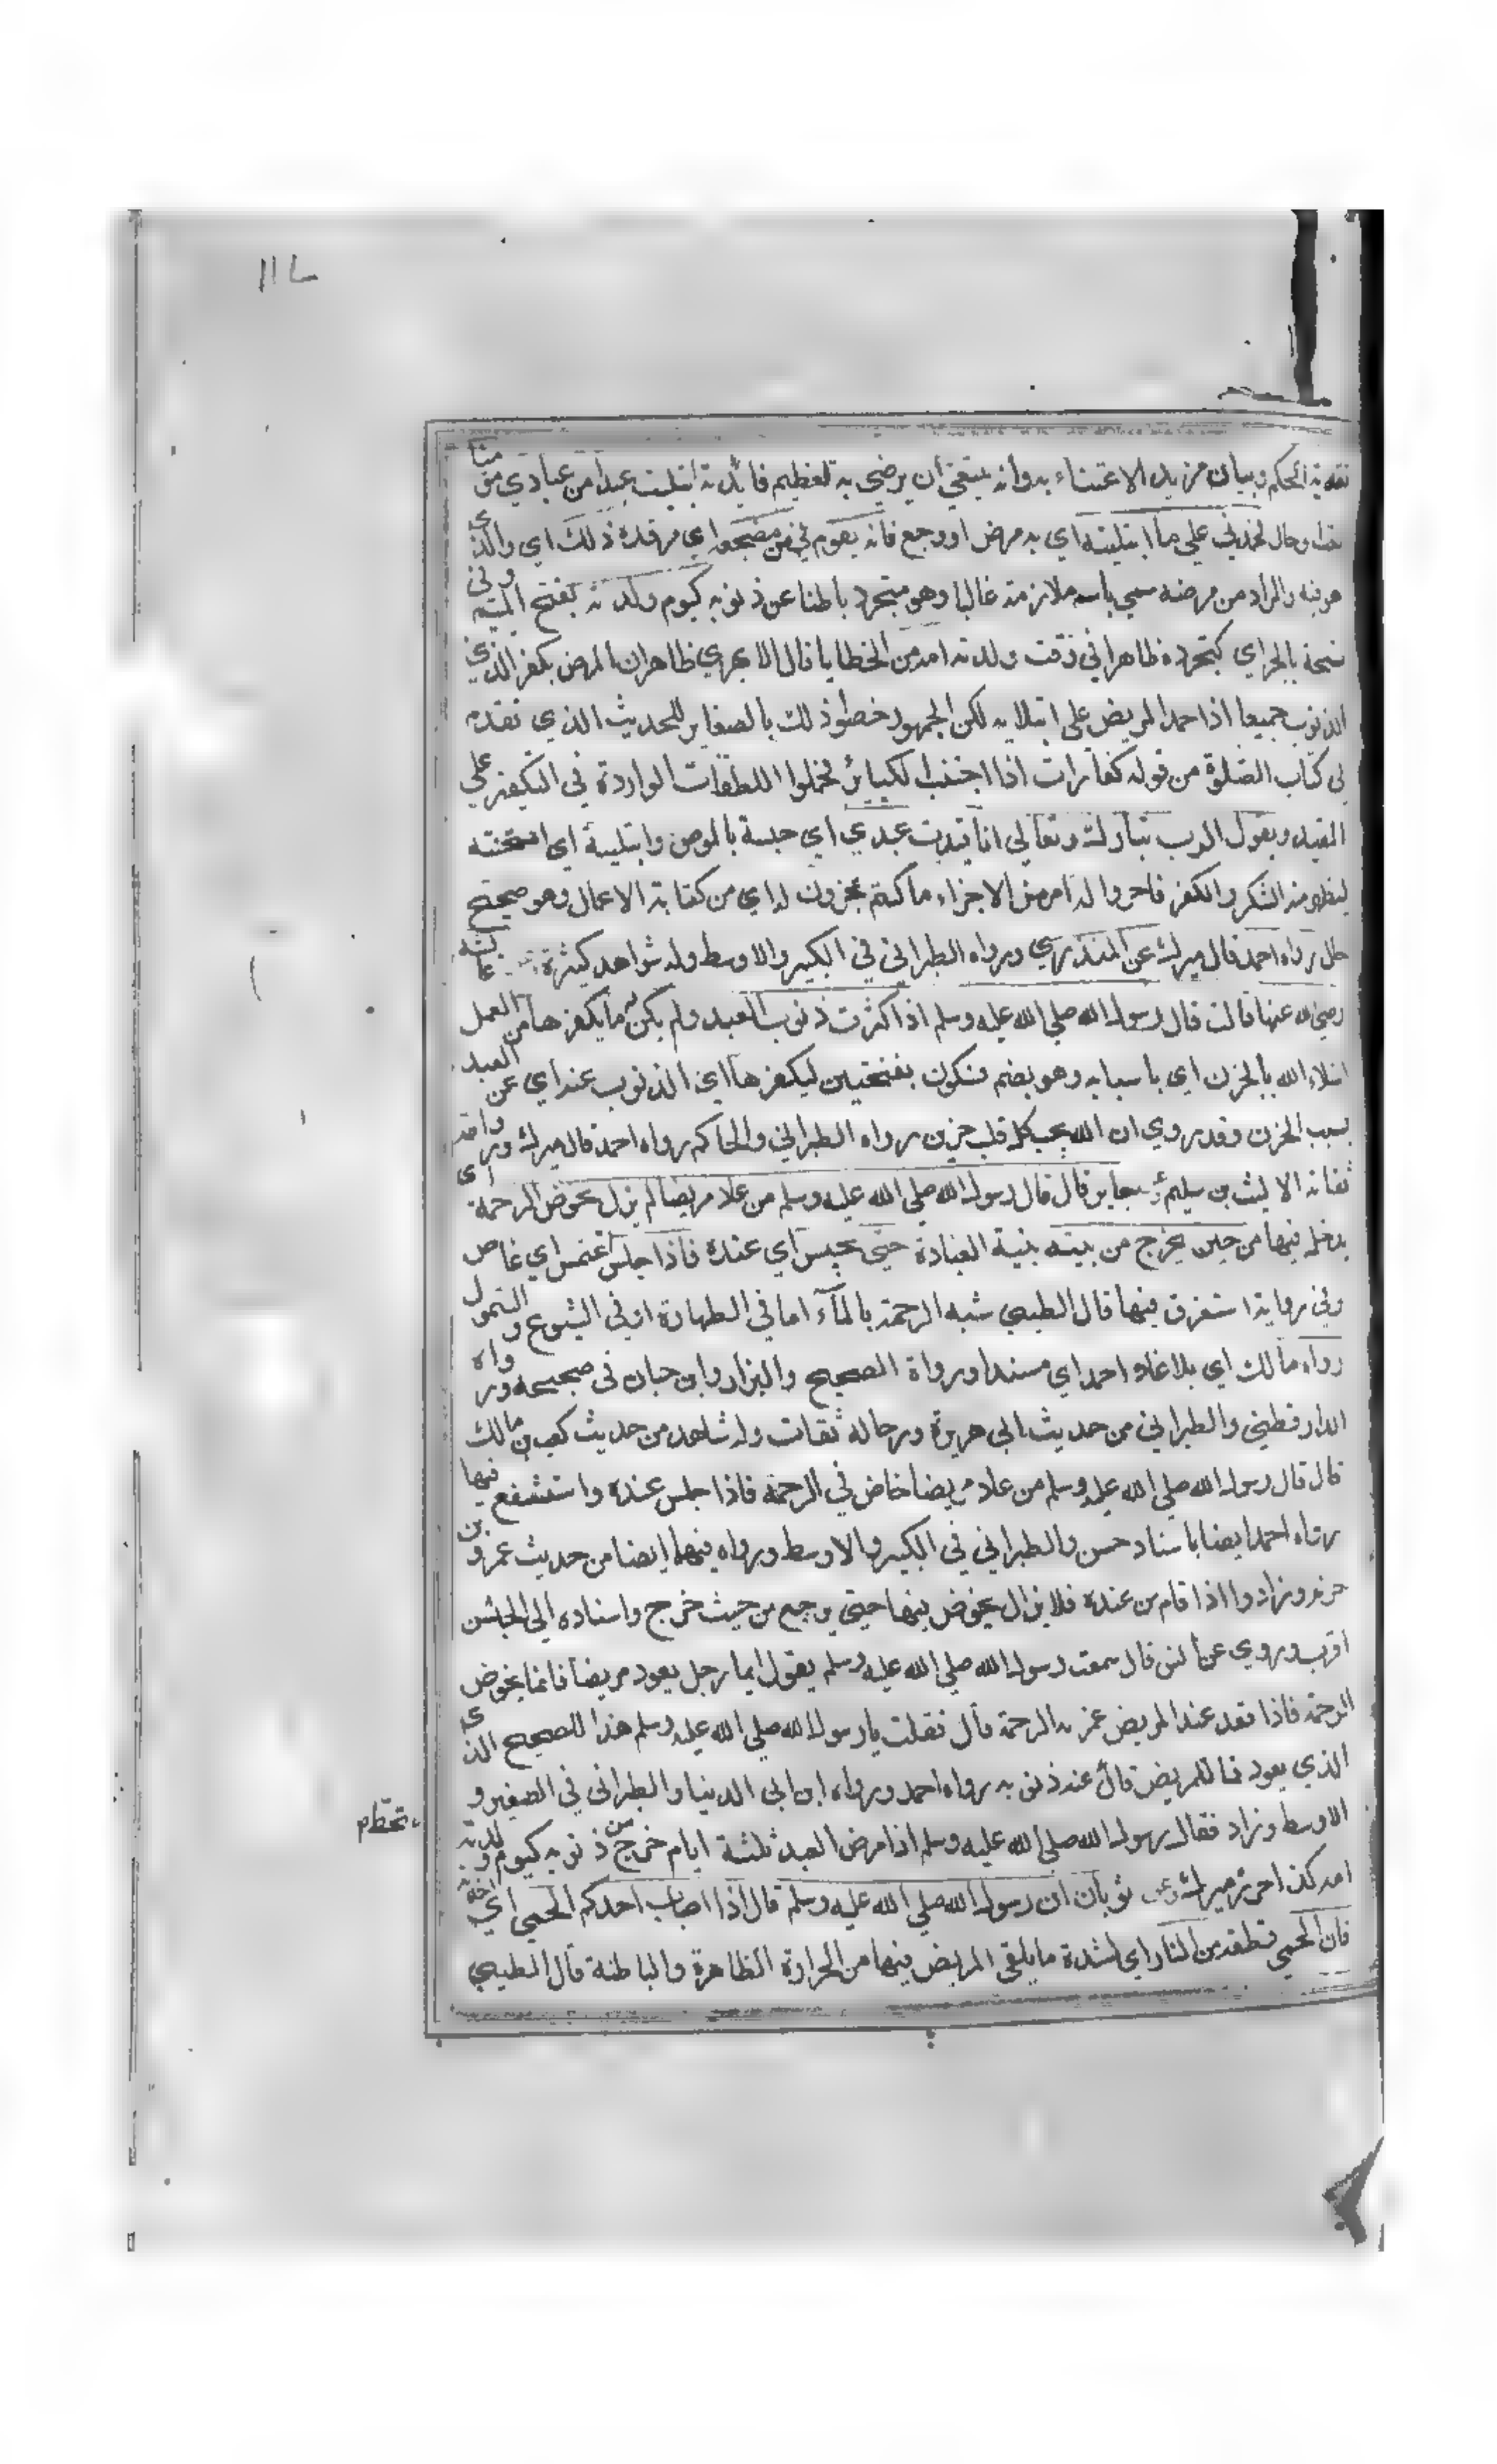 ١١٧
وبيان مزيد الاعتناء به وانه ينبغي ان يرضى به لعظيم فائدته ابتليت عبدا من عبادي مؤمنا
فحمدني على ما ابتليته اي به مرض او وجع فانه يقوم من مضجعه اي مرقده ذلك اي والذي
هو فيه والمراد من مرضه سمي باسم ملازمته غالبا وهو متجرد باطنا عن ذنوبه كيوم ولدته بفتح الميم وفي
نسخة بالجر اي كتجرده ظاهرا في وقت ولدته امه من الخطايا قال ظاهر ان المرض يكفر الذي
الذنوب جميعا اذا حمد المريض على ابتلايه لكن الجمهور خصوا ذلك بالصغاير للحديث الذي تقدم
في كتاب الصلوة من قوله كفارات اذا اجتنب الكبائر فحملوا المطلقات الواردة في التكفير علي
المقيد ويقول الرب تبارك وتعالي انا قيدت عبدي اي حبسته بالمرض وابتليته اي امتحنته
ليظهر منه الشكر والكفر فاجروا له امر من الاجراء ما كنتم تجرون له اي من كتابة الاعمال وهو صحيح
حال رواه احمد قال ميرك عن المنذري ورواه الطبراني في الكبير والاوسط وله شواهد كثيرة عائشه
رضي الله عنها قالت قال رسول الله صلي الله عليه وسلم اذا كثرت ذنوب العبد ولم يكن له ما يكفرها من العمل
ابتلاه الله بالحزن اي باسبابه وهو بضم فسكون بفتحتين ليكفرها اي الذنوب عنه اي عن العبد
بسبب الحزن وقد روي ان الله يحب كل قلب حزين رواه الطبراني والحاكم رواه احمد قال ميرك ورواته
ثقات الا ليث بن سليم جابر قال قال رسول الله صلي الله عليه وسلم من عاد مريضا لم يزل يخوض الرحمة اي
يدخل فيها من حين يخرج من بيته بنية العيادة حتي يجلس اي عنده فاذا جلس اغتمس اي غاص
وفي رواية استغرق فيها قال الطيبي شبه الرحمة بالمآء اما في الطهارة او في الشيوع والشمول
رواه مالك اي بلاغا و احمد اي مسندا ورواة الصحيح والبزار وابن حبان في صحيحه ورواه
الدارقطني والطبراني من حديث ابي هريرة ورجاله ثقات وله شاهد من حديث كعب بن مالك
قال قال رسول الله صلي الله عليه وسلم من عاد مريضا خاض في الرحمة فاذا جلس عنده فيها
رواه احمد ايضا باسناد حسن والطبراني في الكبير والاوسط ورواه فيهما ايضا من حديث عمرو بن
حزم وزادوا اذا قام من عنده فلا يزال يخوض فيها حتي يرجع من حيث خرج واسناده الي الحسن
اقرب وروي عن انس قال سمعت رسول الله صلي الله عليه وسلم يقول ايما رجل يعود مريضا فانما يخوض
الرحمة فاذا قعد عند المريض غمرته الرحمة قال فقلت يا رسول الله صلي الله عليه وسلم هذا للصحيح الذي
الذي يعود فما للمريض قال عنه ذنوبه رواه احمد ورواه ابن ابي الدنيا والطبراني في الصغير و
تحط م
الاوسط وزاد فقال رسول الله صلي الله عليه وسلم اذا مرض العبد ثلثة ايام خرج من ذنوبه كيوم ولدته
امه كذا ميرك ثوبان ان رسول الله صلي الله عليه وسلم قال اذا اصاب احدكم الحمى اي
فان الحمي قطعة من النار اي لشدة ما يلقي المريض فيها من الحرارة الظاهرة والباطنة قال الطيبي